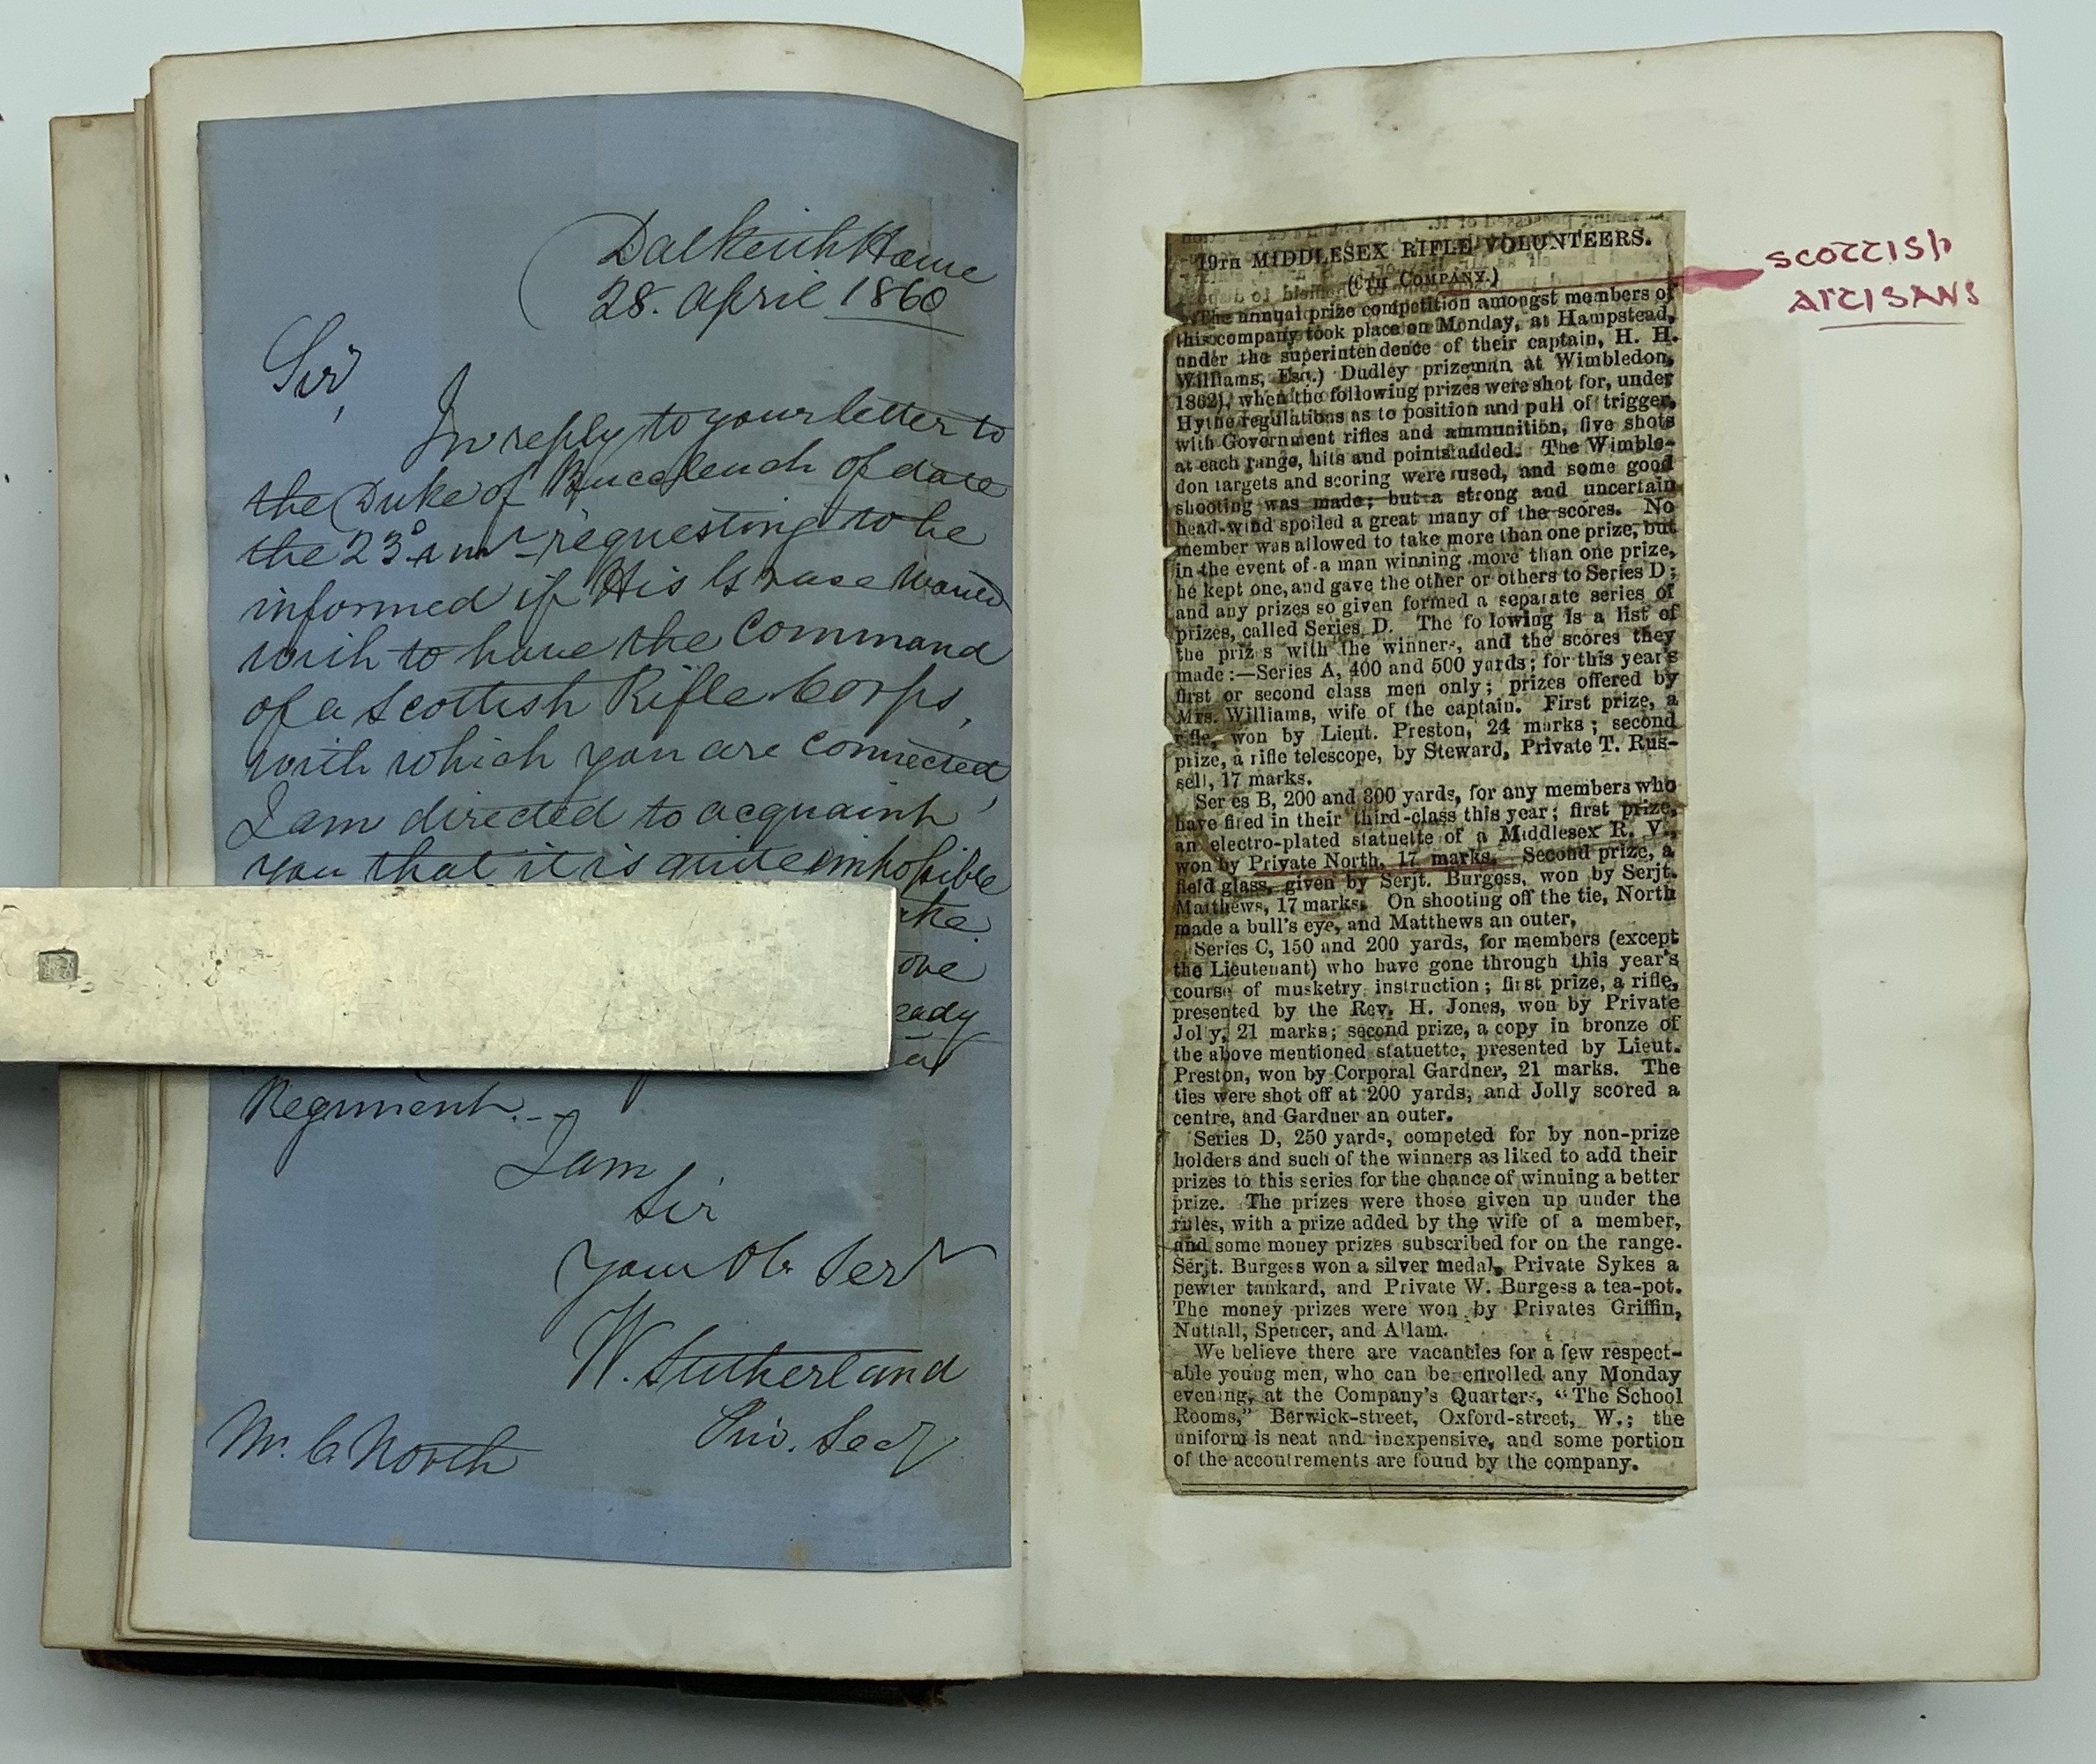 Dalkeith House
28. April 1860
Sir,
In reply to your letter to
the Duke of Buccleuch of date
the 23d requesting to be
informed if His Grace would
wish to have the Command
of a Scottish Rifle Corps,
with which you are connected,
I am directed to acquaint
you that it is quite impossible
the
ove
eady
Regiment.
I am
Sir
Your Ob. Servt
W. Sutherland
Priv. Secy
Mr. C North
19TH MIDDLESEX RIFLE VOLUNTEERS.
(6TH COMPANY.)
The annual prize competition amongst members of
this company took place on Monday, at Hampstead,
under the superintendence of their captain, H. H.
Williams, Esq.) Dudley prizeman at Wimbledon,
1862), when the following prizes were shot for, under
Hythe regulations as to position and pull of trigger,
with Government rifles and ammunition, five shots
at each range, hits and points added. The Wimble-
don targets and scoring were used, and some good
shooting was made; but a strong and uncertain
head-wind spoiled a great many of the scores. No
member was allowed to take more than one prize, but
in the event of a man winning more than one prize,
he kept one, and gave the other or others to Series D;
and any prizes so given formed a separate series of
prizes, called Series D. The fo lowing is a list of
the priz s with the winners, and the scores they
made:—Series A, 400 and 500 yards; for this year's
first or second class men only; prizes offered by
Mrs. Williams, wife of the captain. First prize, a
rifle, won by Lieut. Preston, 24 marks; second
prize, a rifle telescope, by Steward, Private T. Rus-
sell, 17 marks.
Ser es B, 200 and 300 yards, for any members who
have fired in their third-class this year; first prize,
an electro-plated statuette of a Middlesex R. V.,
won by Private North, 17 marks. Second prize, a
field glass, given by Serjt. Burgess, won by Serjt.
Matthews, 17 marks. On shooting off the tie, North
made a bull's eye, and Matthews an outer.
Series C, 150 and 200 yards, for members (except
the Lieutenant) who have gone through this year's
course of musketry instruction; first prize, a rifle,
presented by the Rev. H. Jones, won by Private
Jolly, 21 marks; second prize, a copy in bronze of
the above mentioned statuette, presented by Lieut.
Preston, won by Corporal Gardner, 21 marks. The
ties were shot off at 200 yards, and Jolly scored a
centre, and Gardner an outer.
Series D, 250 yards, competed for by non-prize
holders and such of the winners as liked to add their
prizes to this series for the chance of winning a better
prize. The prizes were those given up under the
rules, with a prize added by the wife of a member,
and some money prizes subscribed for on the range.
Serjt. Burgess won a silver medal, Private Sykes a
pewter tankard, and Private W. Burgess a tea-pot.
The money prizes were won by Privates Griffin,
Nuttall, Spencer, and Allam.
We believe there are vacancies for a few respect-
able young men, who can be enrolled any Monday
evening, at the Company's Quarters, "The School
Rooms," Berwick-street, Oxford-street, W.; the
uniform is neat and inexpensive, and some portion
of the accoutrements are found by the company.
SCOTTISH
ARTISANS